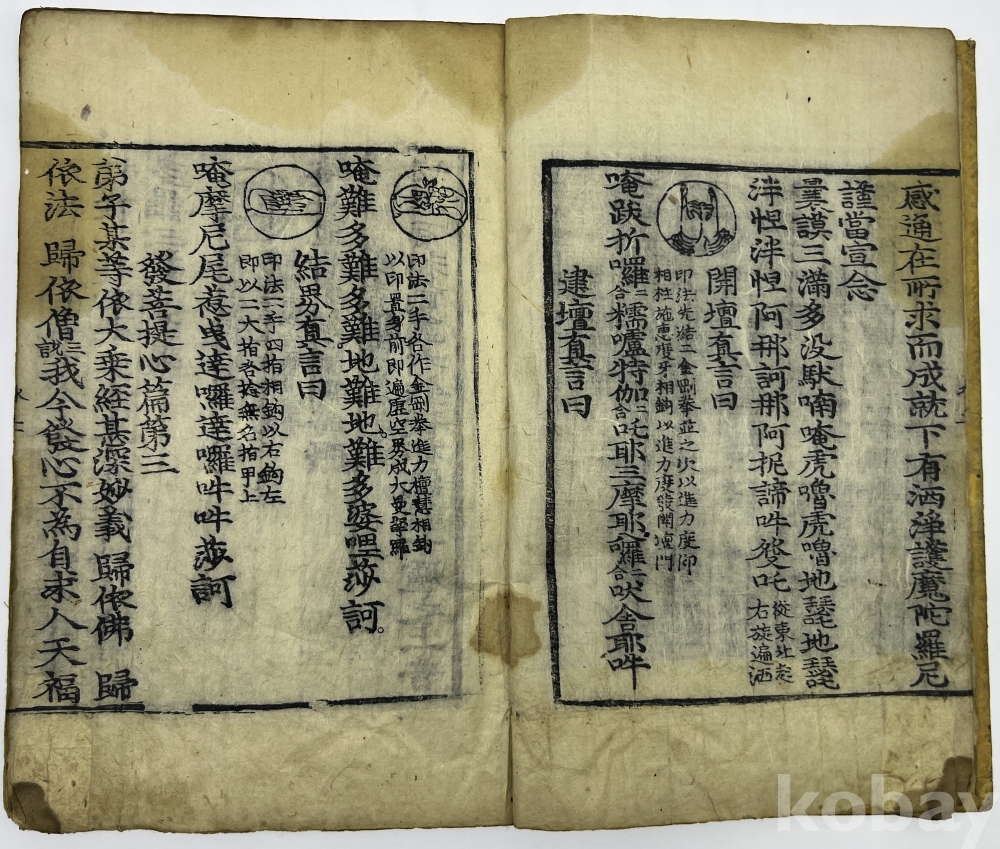 感通在所求而成就下有洒淨護魔陀羅尼
謹當宣念
曩謨三滿多没馱喃唵虎嚕虎嚕地瑟吒地瑟吒
泮怛泮怛阿那訶那阿抳諦吽癹吒 從東北志
右旋遍洒
開壇真言曰
印法先結二金剛拳並之次以進力度仰
相柱施惠度牙相鈎以進力度發開壇門
唵跋折囉二合糯嚧特伽二合吒耶三摩耶鉢囉二合吠舍耶吽
建壇真言曰
印法二手各作金剛拳進力檀慧相鈎
以印置身前即遍虛空界成大曼拏羅
唵難多難多難地難地難多婆哩莎訶。
結界真言曰
印法二手四指相鈎以右鈎左
即以二大指各捻無名指甲上
唵摩尼尾惹曳達囉達囉吽吽莎訶
發菩提心篇第三
弟子某等依大乘經甚深妙義歸依佛 歸
依法 歸依僧三說我今發心不為自求人天福
kobay